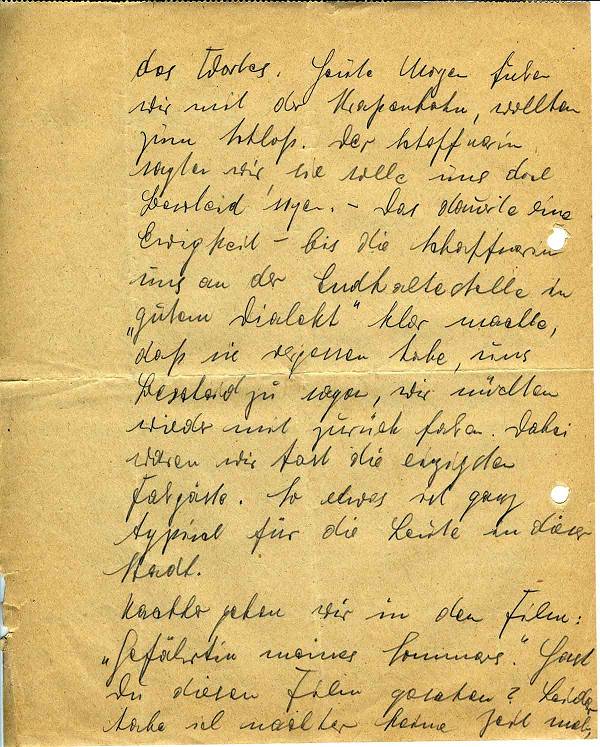 des Wortes. Heute Morgen fuhren
wir mit der Straßenbahn, wollten
zum Schloß. Der Schaffnerin
sagten wir sie solle uns doch
Bescheid sagen. – Das dauerte eine
Ewigkeit – bis die Schaffnerin
uns an der Endhaltestelle in
„gutem Dialekt" klar machte,
daß sie vergessen habe, uns
Bescheid zu sagen, wir möchten
wieder mit zurück fahren. Dabei
waren wir fast die einzigsten
Fahrgäste. So etwas ist ganz
typisch für die Leute in dieser
Stadt.
Nachher gehen wir in den Film:
„Gefährtin meines Sommers". Hast
Du diesen Film gesehen? Leider
habe ich nachher keine Zeit mehr,